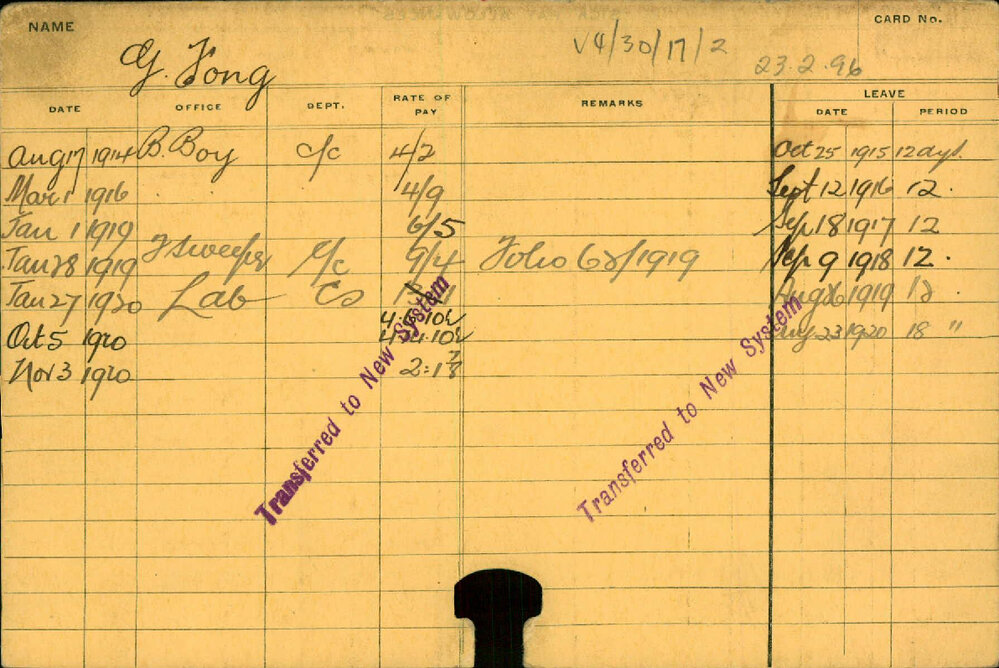 NAME
CARD No.
G. Fong
V4/30/17/2
23.2.96
DATE OFFICE DEPT. RATE OF PAY REMARKS LEAVE
DATE PERIOD
Aug 17 1914 B. Boy c/c 4/2 Oct 25 1915 12 days.
Mar 1 1916 4/9 Sept 12 1916 12.
Jan 1 1919 6/5 Sep. 18 1917 12
Jan 28 1919 9/4 Folio 1919 Sep 9 1918 12.
Jan 27 1920 Lab Aug 26 1919 12
Oct 5 1920 23 1920 18 "
Nov 3 1920
Transferred to New System
Transferred to New System